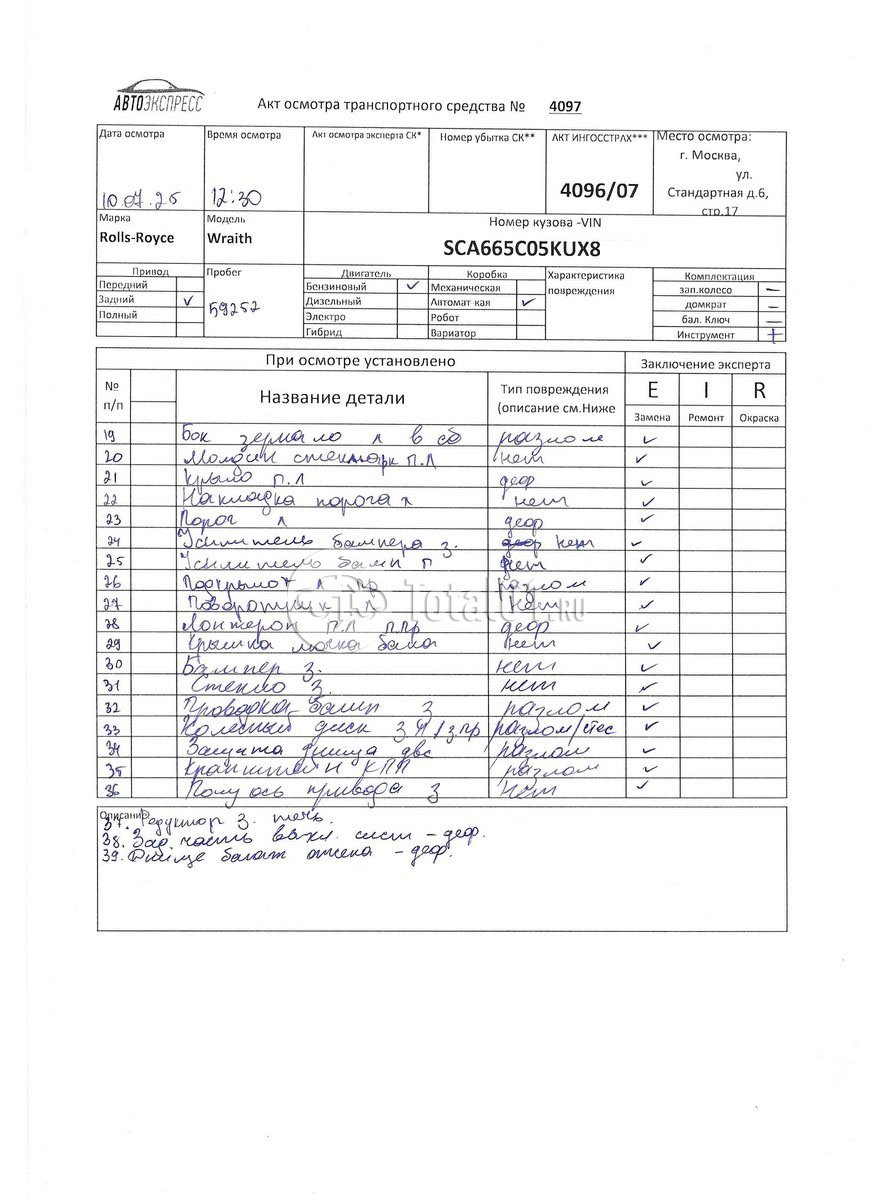 АВТОЭКСПРЕСС
Акт осмотра транспортного средства № 4097
Дата осмотра
10.07.25
Время осмотра
12:30
Акт осмотра эксперта СК*
Номер убытка СК**
АКТ ИНГОССТРАХ***
4096/07
Место осмотра:
г. Москва,
ул.
Стандартная д.6,
стр.17
Марка
Rolls-Royce
Модель
Wraith
Номер кузова -VIN
SCA665C05KUX8
Привод
Передний
Задний ✓
Полный
Пробег
59252
Двигатель
Бензиновый ✓
Дизельный
Электро
Гибрид
Коробка
Механическая
Автомат кая ✓
Робот
Вариатор
Характеристика
повреждения
Комплектация
зап.колесо –
домкрат –
бал. Ключ –
Инструмент +
При осмотре установлено
Заключение эксперта
№
п/п
Название детали
Тип повреждения
(описание см.Ниже
E I R
Замена Ремонт Окраска
19 Бок зеркало л в сб разлом ✓
20 Молдинг п.л нет ✓
21 Крыло п.л деф ✓
22 Накладка порога л нет ✓
23 Порог л деф ✓
24 Усилитель бампера з. деф нет ✓
25 Усилитель бамп п нет ✓
26 Подкрылок л пр разлом ✓
27 Поворотник л нет ✓
28 Лонжерон п.л п.пр деф ✓
29 Крышка бачка нет ✓
30 Бампер з. нет ✓
31 Стекло з. нет ✓
32 Проводка бамп з разлом ✓
33 Колесный диск з.л/з.пр разлом/стес ✓
34 Защита днища двс разлом ✓
35 Кронштейн КПП разлом ✓
36 Полуось привода з нет ✓
Описание
37. Редуктор з. течь.
38. Зад. часть выхл. сист – деф.
39. Днище багаж отсека – деф.
Total01.RU